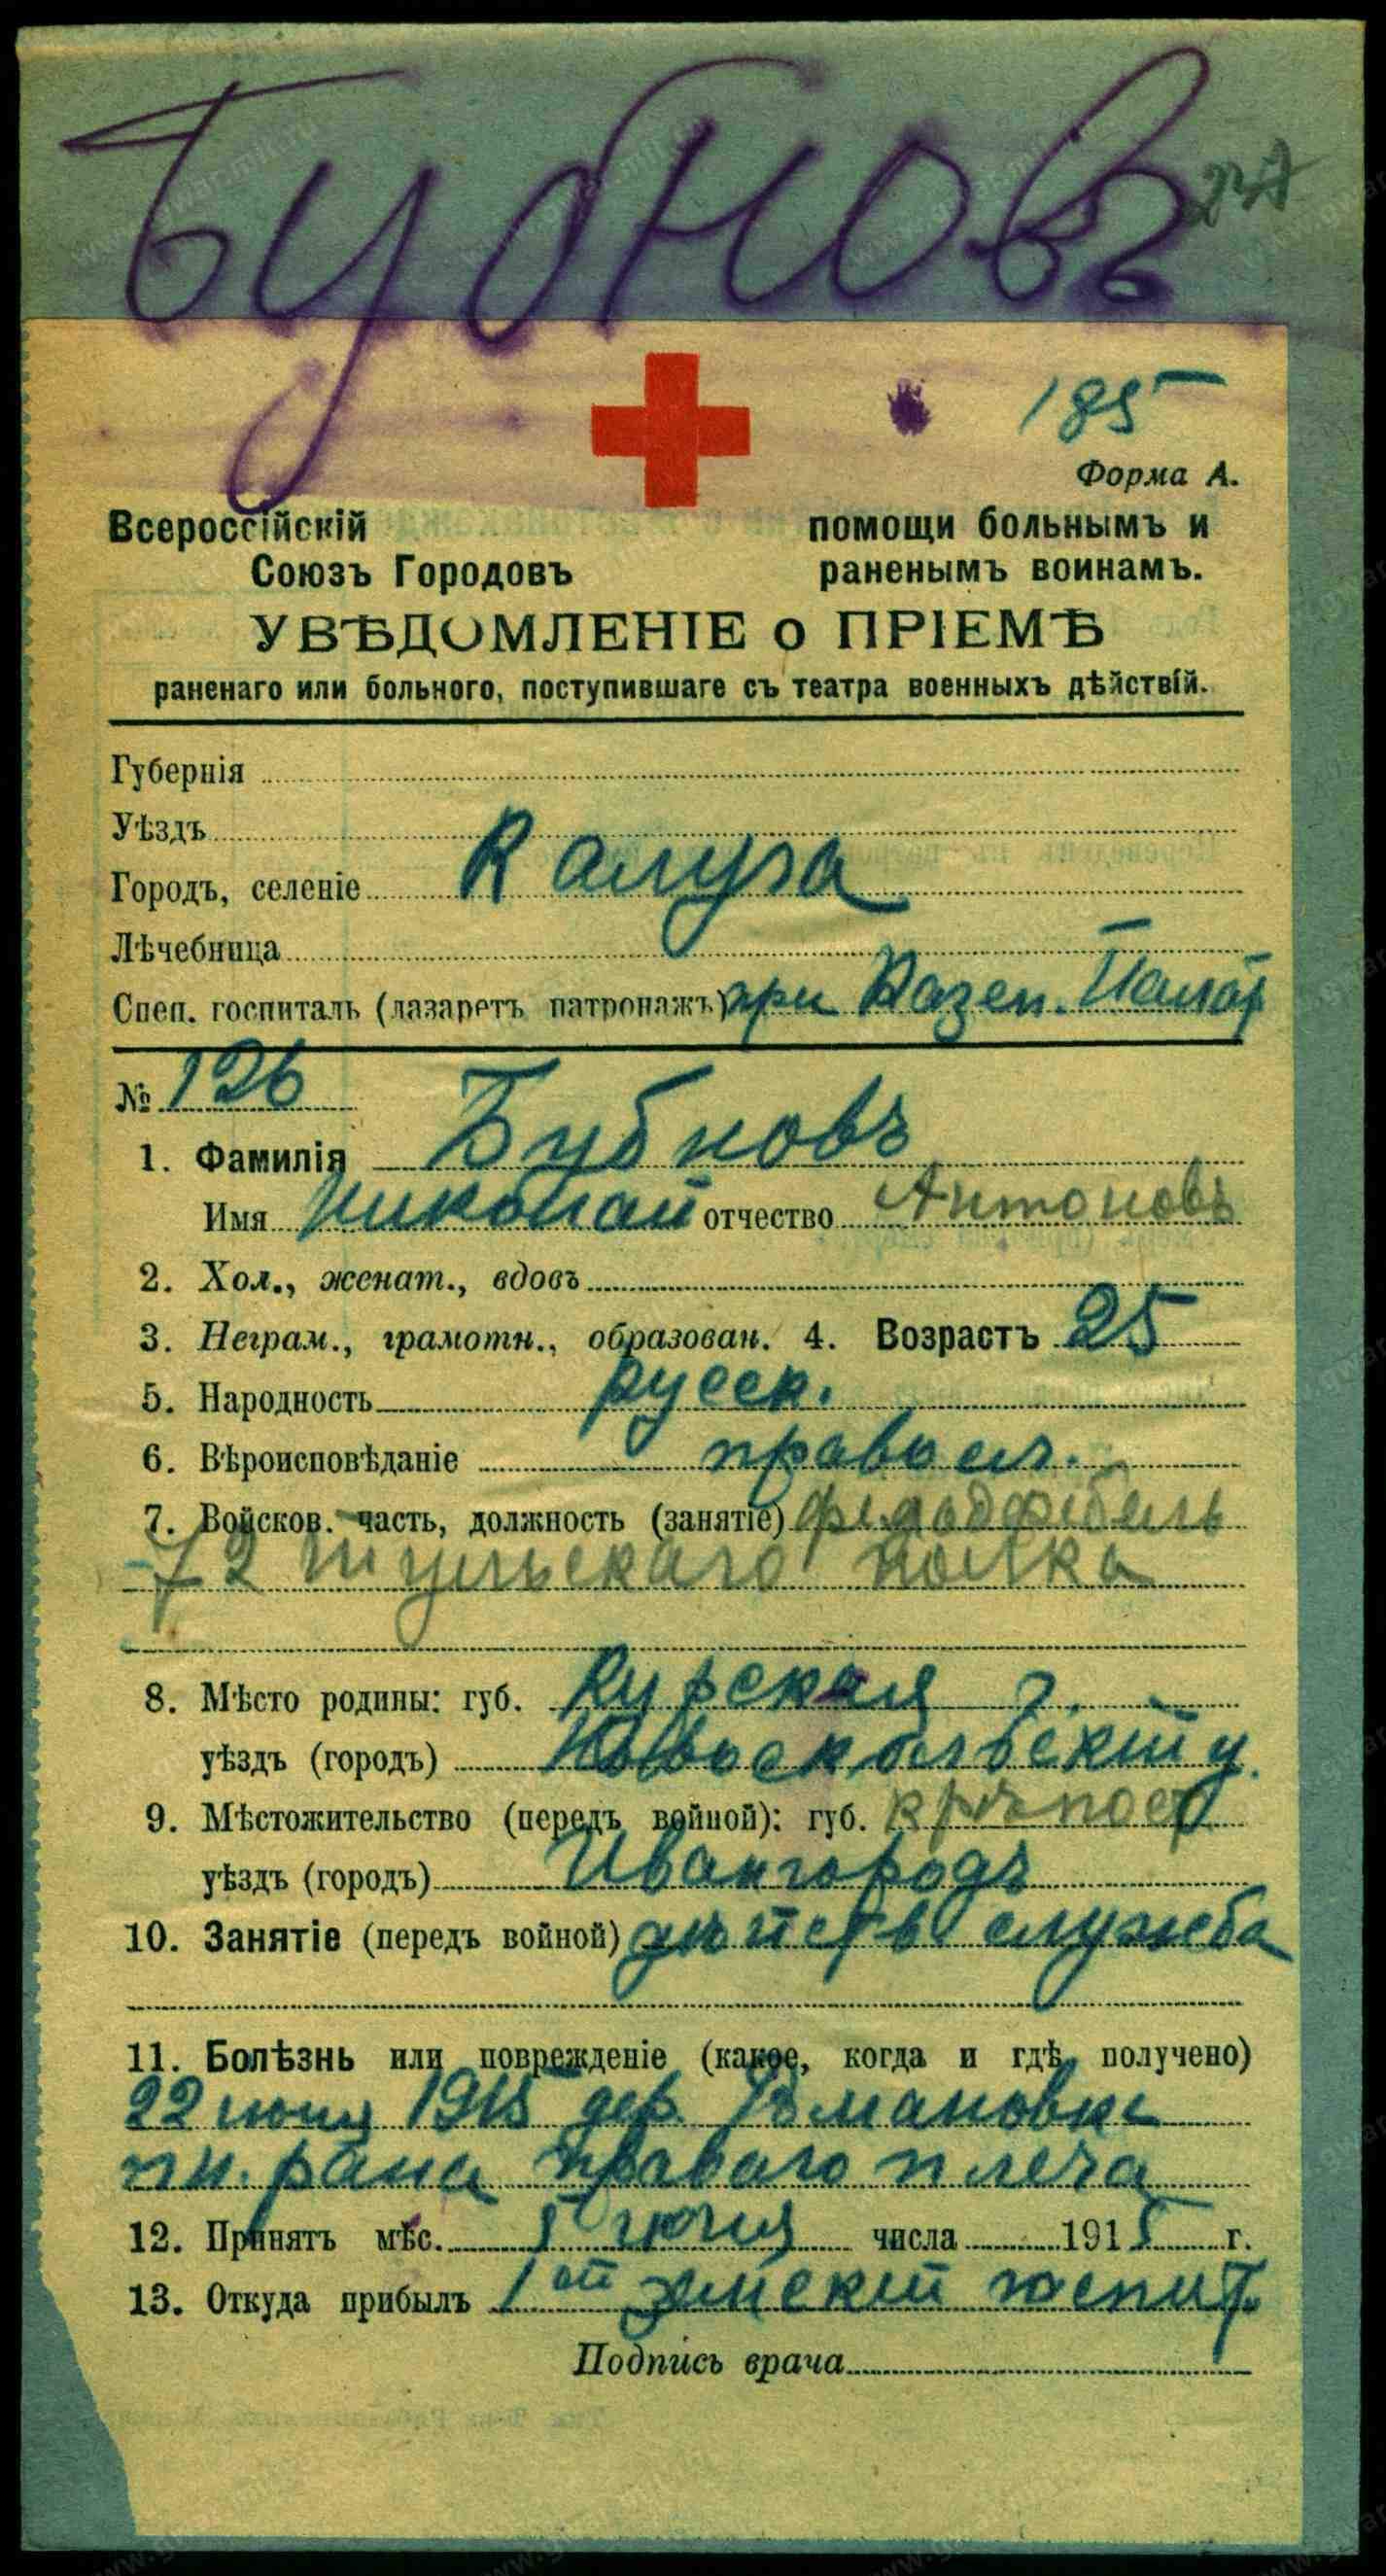 Бубновъ 237
185
Форма А.
Всероссійскій помощи больнымъ и
Союзъ Городовъ раненымъ воинамъ.
УВѢДОМЛЕНІЕ о ПРІЕМѢ
раненаго или больного, поступившаге съ театра военныхъ дѣйствій.
Губернія
Уѣздъ
Городъ, селеніе Калуга
Лѣчебница
Спец. госпиталь (лазаретъ патронажъ) при Казен. Палат
№ 126
1. Фамилія Бубновъ
Имя Николай отчество Антоновъ
2. Хол., женат., вдовъ
3. Неграм., грамотн., образован. 4. Возрастъ 25
5. Народность русск.
6. Вѣроисповѣданіе правосл.
7. Войсков. часть, должность (занятіе) фельдфебель
72 Тульскаго полка
8. Мѣсто родины: губ. Курская г.
уѣздъ (городъ) Новоскольскій у.
9. Мѣстожительство (передъ войной): губ. крѣпост
уѣздъ (городъ) Ивангородъ
10. Занятіе (передъ войной) дѣйств служба
11. Болѣзнь или поврежденіе (какое, когда и гдѣ получено)
22 1915 дер. Романовка
пул. рана праваго плеча
12. Принятъ мѣс. 5 числа 1915 г.
13. Откуда прибылъ 1ой земскій госпит.
Подпись врача